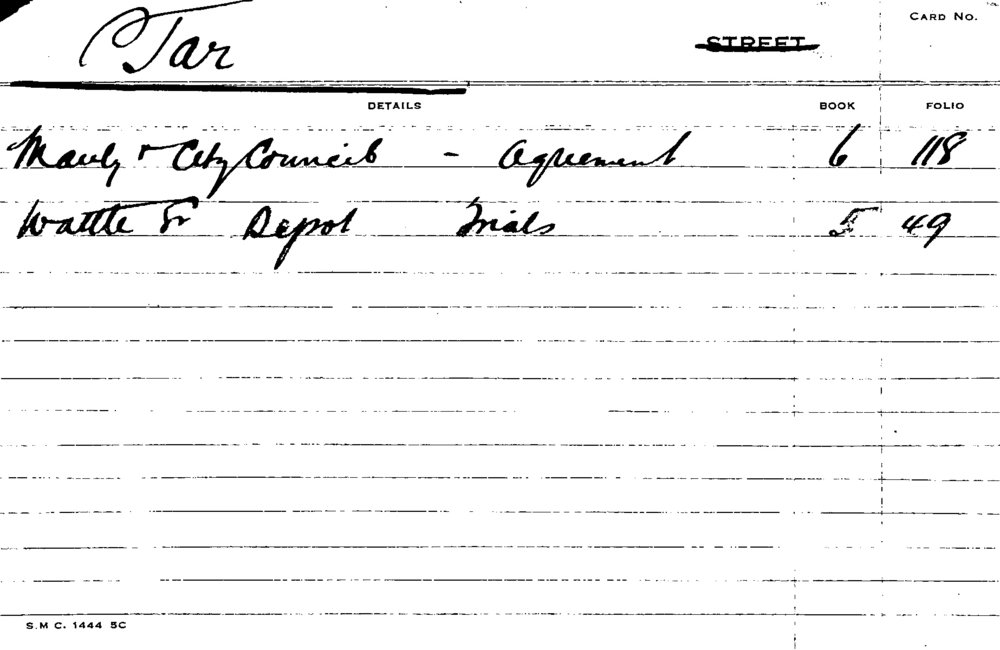 CARD NO.
Tar STREET
DETAILS BOOK FOLIO
Manly & City Councils - Agreement 6 118
Wattle St Depot Trials 5 49
S.M C. 1444 5C